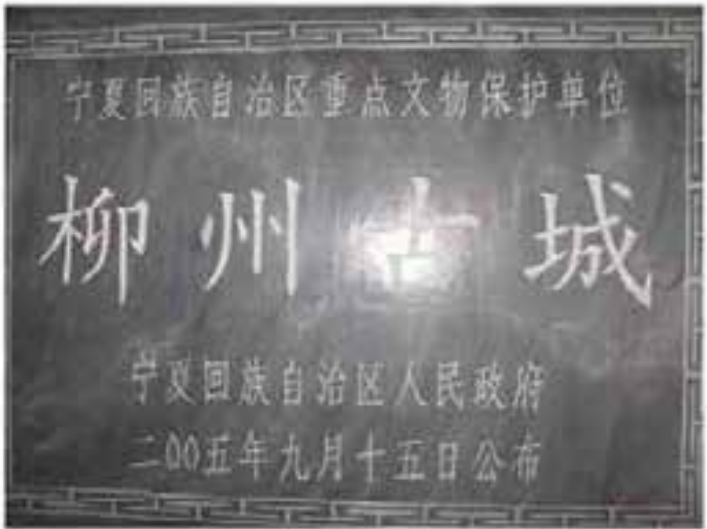 宁夏回族自治区重点文物保护单位
柳州古城
宁夏回族自治区人民政府
二00五年九月十五日公布